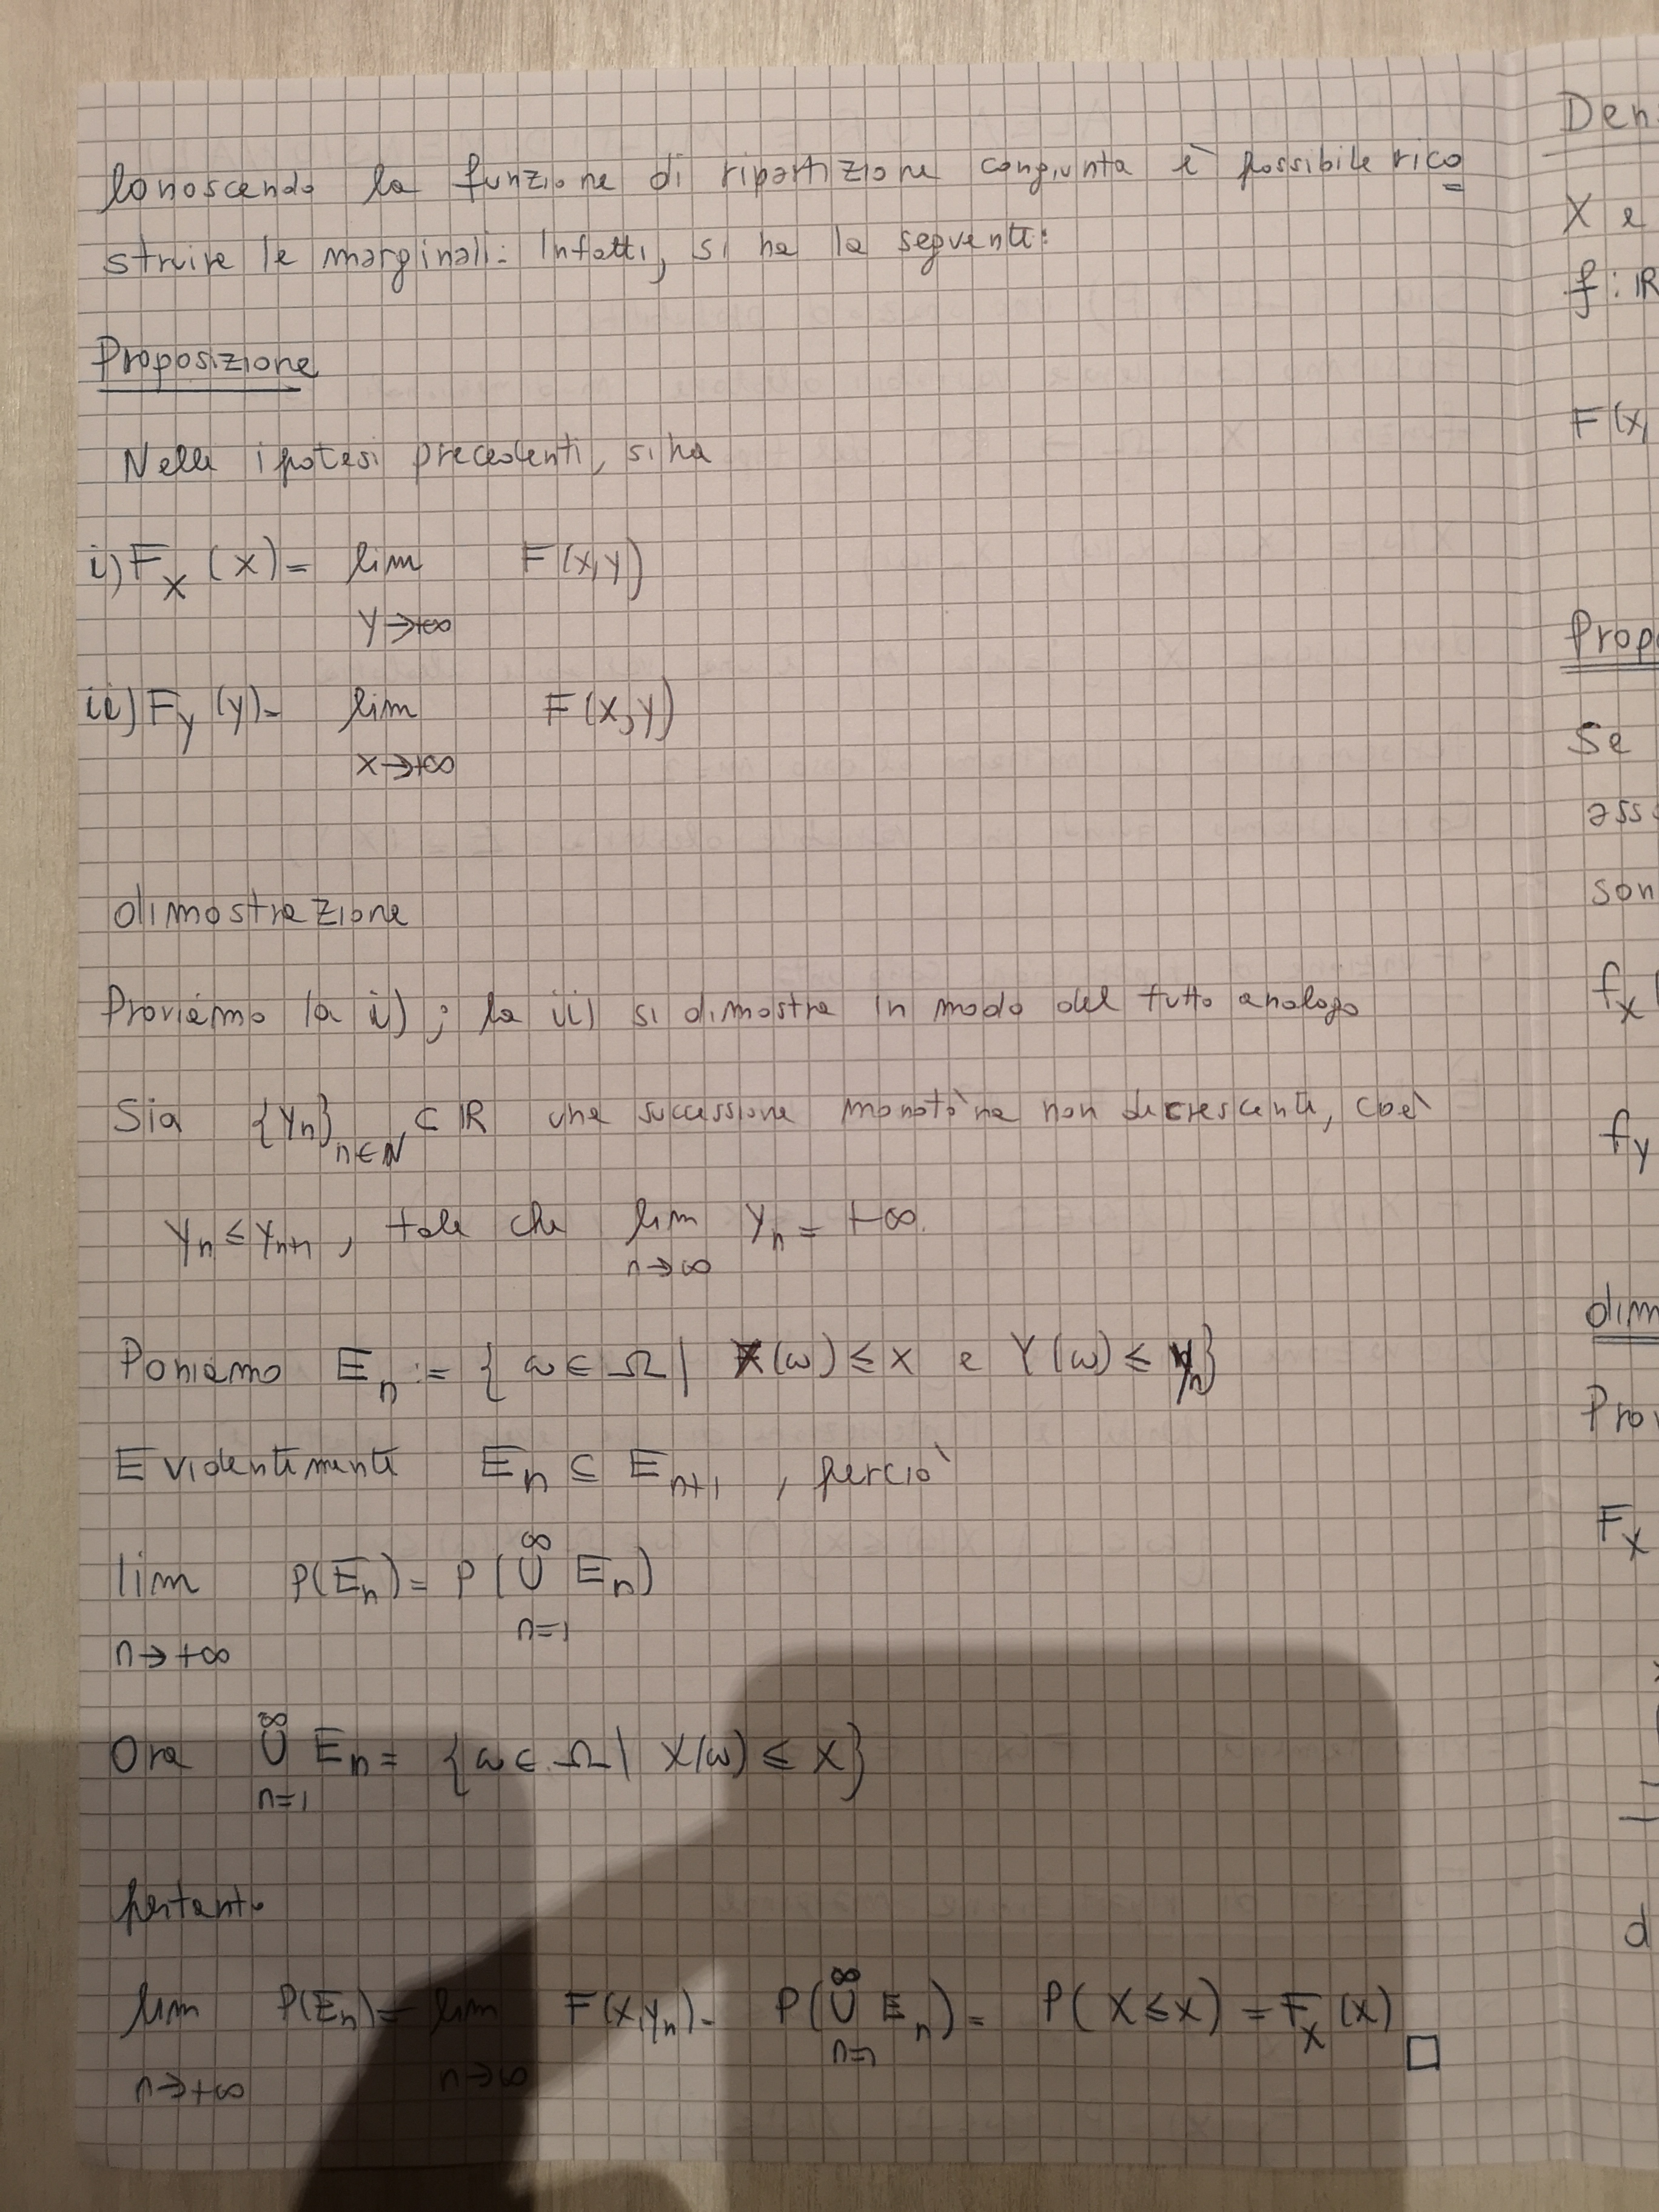 Conoscendo la funzione di ripartizione congiunta è possibile rico
struire le marginali. Infatti, si ha la seguente:
Proposizione
Nelle ipotesi precedenti, si ha
i) F_X (x) = lim F(x,y)
y→+∞
ii) F_Y (y) = lim F(x,y)
x→+∞
dimostrazione
Proviamo la i) ; la ii) si dimostra in modo del tutto analogo
Sia {y_n}_{n∈ℕ} ⊂ ℝ una successione monotòna non decrescente, cioè
y_n ≤ y_{n+1} , tale che lim y_n = +∞.
n→∞
Poniamo E_n := { ω ∈ Ω | X(ω) ≤ x e Y(ω) ≤ y_n}
Evidentemente E_n ⊆ E_{n+1} , perciò
lim P(E_n) = P(∪_{n=1}^∞ E_n)
n→+∞
Ora ∪_{n=1}^∞ E_n = {ω ∈ Ω | X(ω) ≤ x}
pertanto
lim P(E_n) = lim F(x,y_n) = P(∪_{n=1}^∞ E_n) = P(X ≤ x) = F_X (x) □
n→+∞ n→∞
Den
X e
f : ℝ
F(x,
Prop
Se
ass
son
f_X
f_Y
dim
Prov
F_X
d